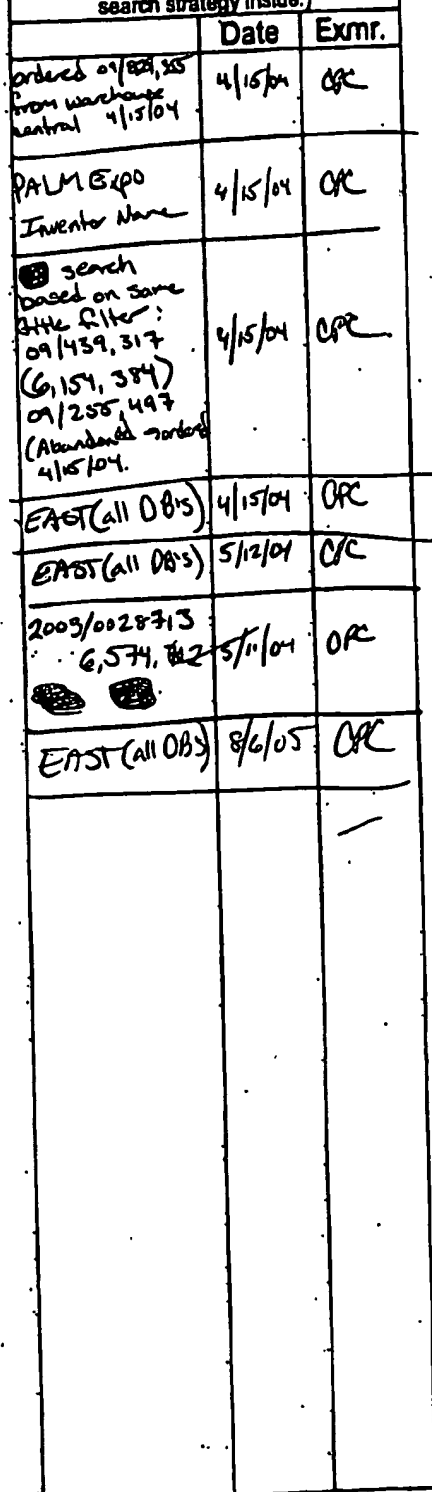 search strategy inside.)
Date Exmr.
ordered 09/829,355
from warehouse
central 4/15/04 4/15/04 CPC
PALM Expo
Inventor Name 4/15/04 CPC
search
based on same
title filter:
09/439,317
(6,154,384) 4/15/04 CPC
09/255,497
(Abandoned ordered
4/15/04.
EAST (all DB's) 4/15/04 CPC
EAST (all DB's) 5/12/04 CPC
2003/0028713
6,574, 5/11/04 CPC
EAST (all DBs) 8/6/05 CPC